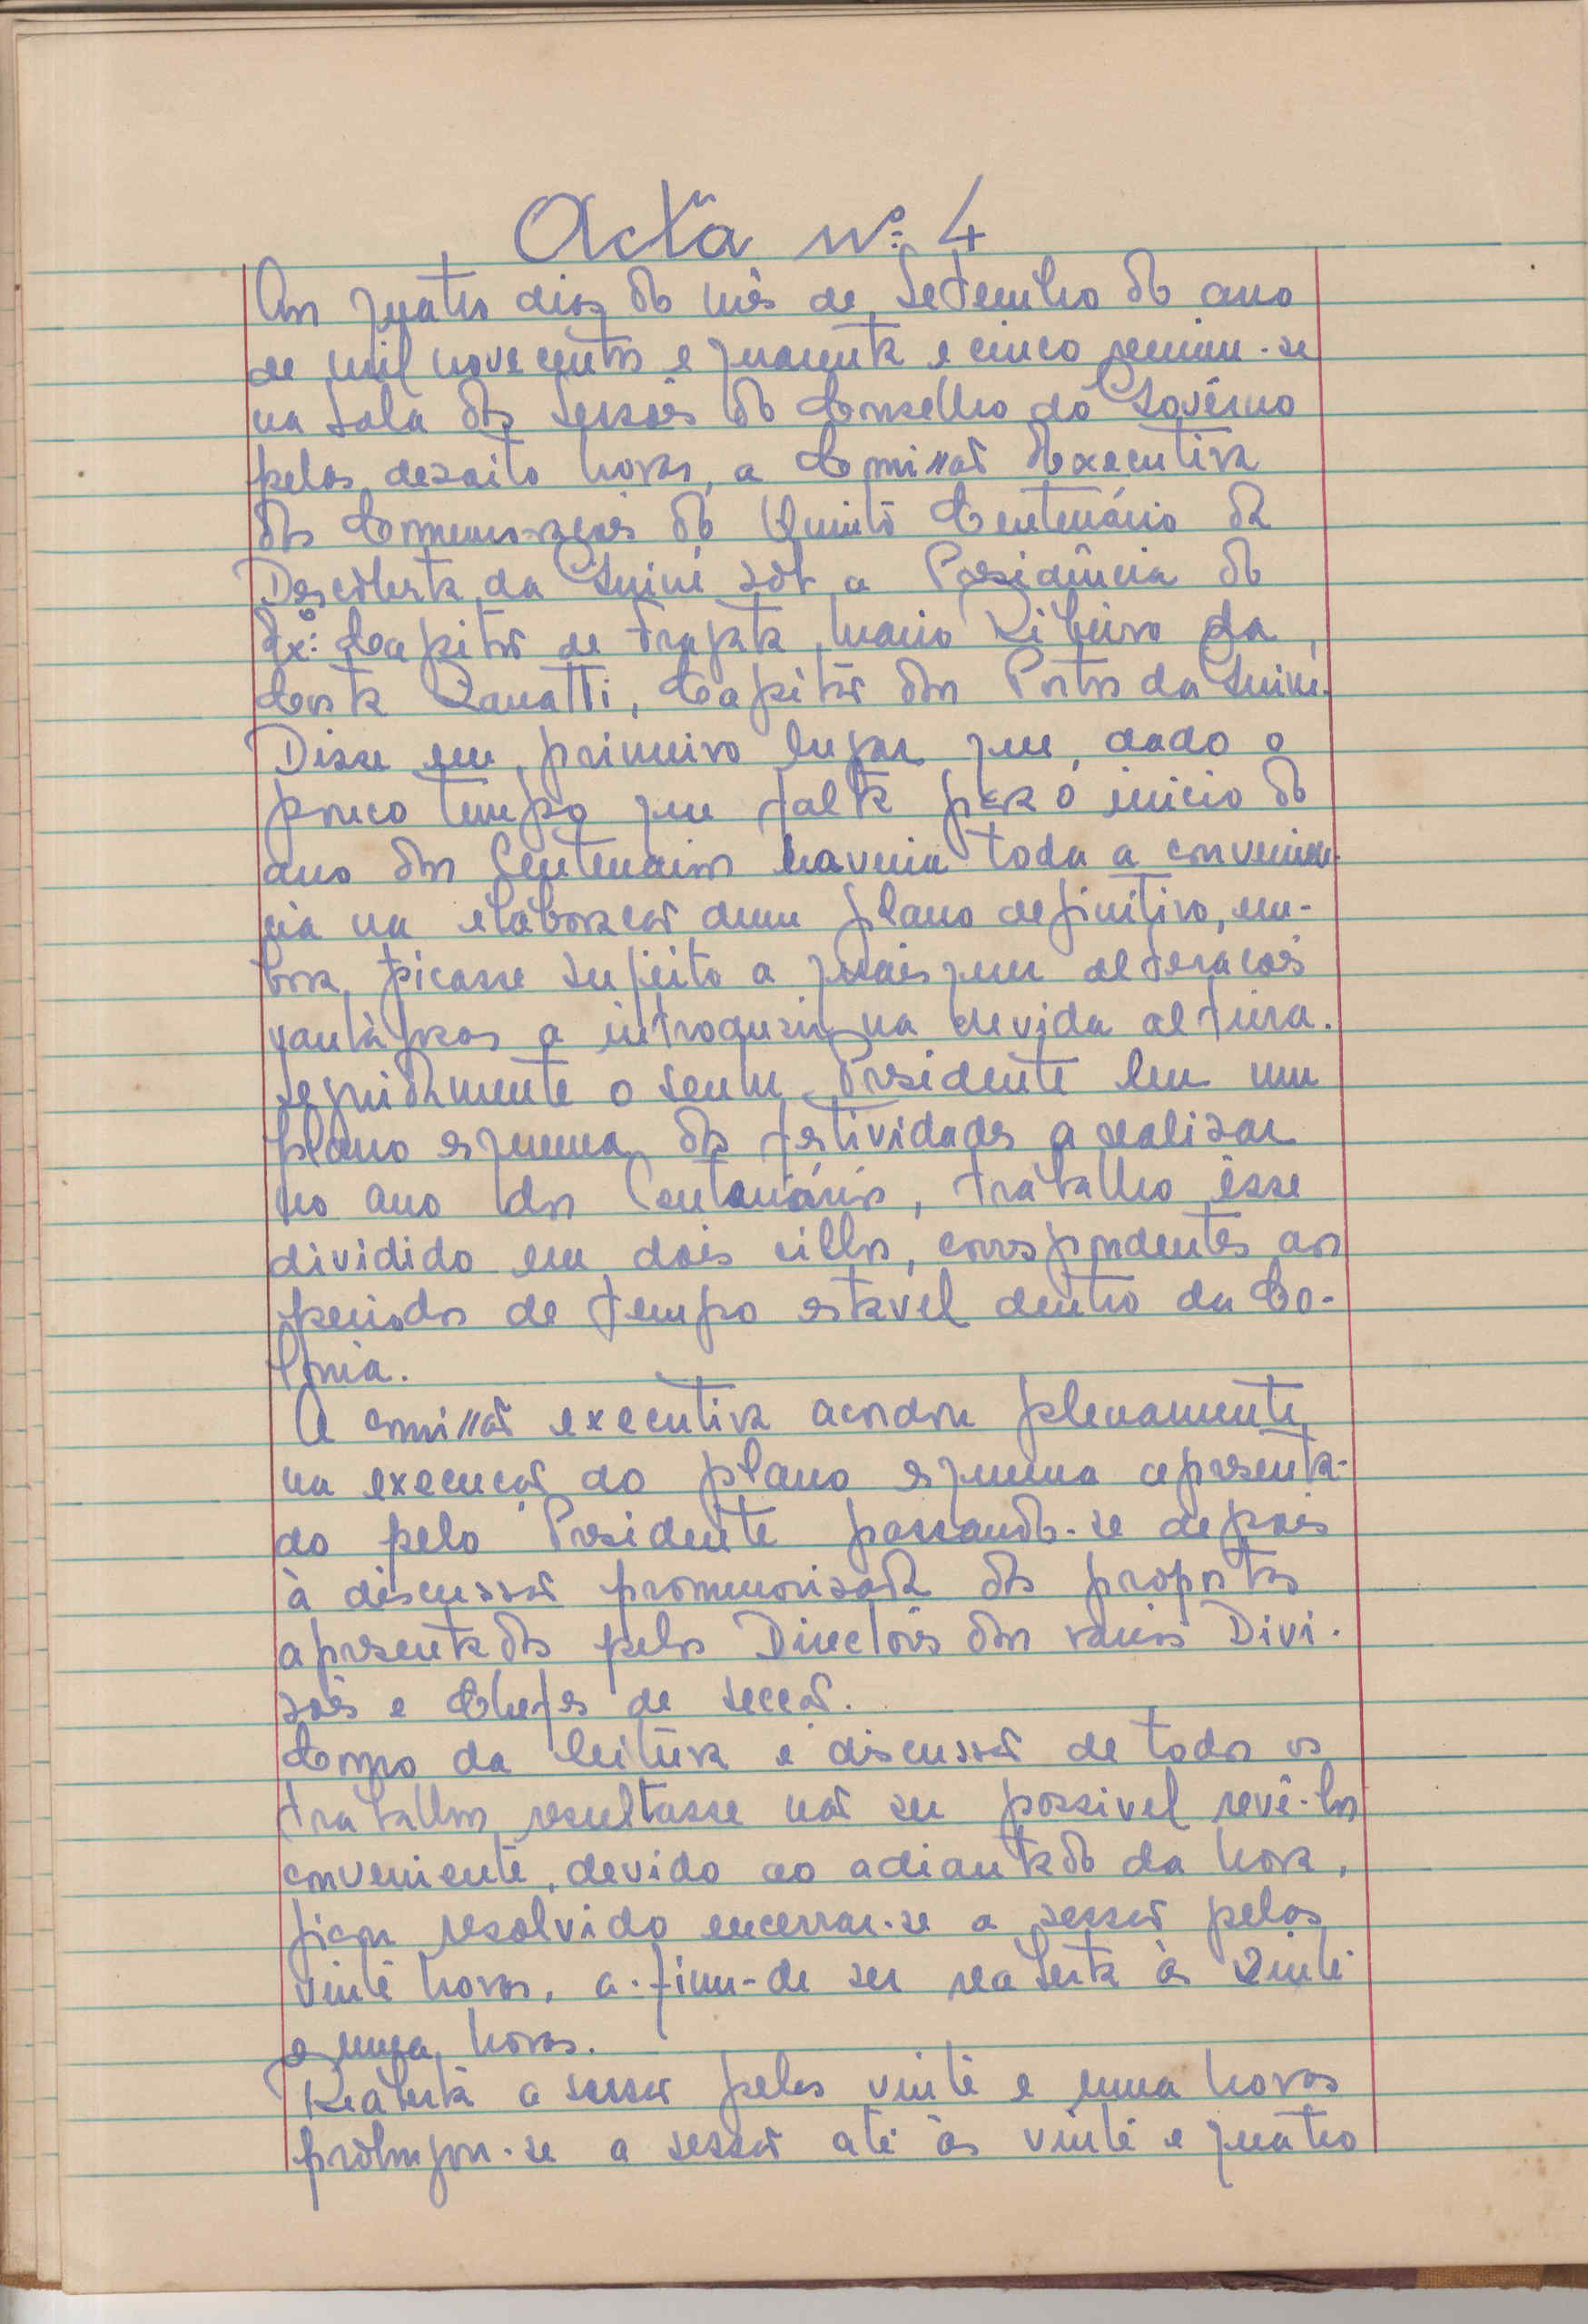 Acta nº 4
Aos quatro dias do mês de Setembro do ano
de mil novecentos e quarenta e cinco reuniu-se
na Sala das Sessões do Conselho do Govêrno
pelas dezoito horas, a Comissão Executiva
das Comemorações do Quinto Centenário da
Descoberta da Guiné sob a Presidência do
Exº: Capitão de Fragata Mario Ribeiro da
Costa Zanatti, Capitão dos Portos da Guiné.
Disse em primeiro lugar que, dado o
pouco tempo que falta para o inicio do
ano dos Centenarios haveria toda a conveniên-
cia na elaboração dum plano definitivo, em-
bora ficasse sujeito a quaisquer alterações
vantàjosas a introduzir na devida altura.
Seguidamente o senhor Presidente leu um
plano esquema das festividades a realizar
no ano dos Centenários, trabalho êsse
dividido em dois ciclos, correspondentes aos
periodos de tempo estavel dentro da Co-
lónia.
A comissão executiva acordou plenamente
na execução do plano esquema apresenta-
do pelo Presidente passando-se depois
à discussão promenorisada das propostas
apresentadas pelos Directores das varias Divi-
sões e Chefes de secção.
Como da leitura e discussão de todos os
trabalhos resultasse não ser possivel revê-los
conveniente, devido ao adiantado da hora,
ficou resolvido encerrar-se a sessão pelas
vinte horas, a-fim-de ser reaberta às vinte
e uma horas.
Reaberta a sessão pelas vinte e uma horas
prolongou-se a sessão até às vinte e quatro